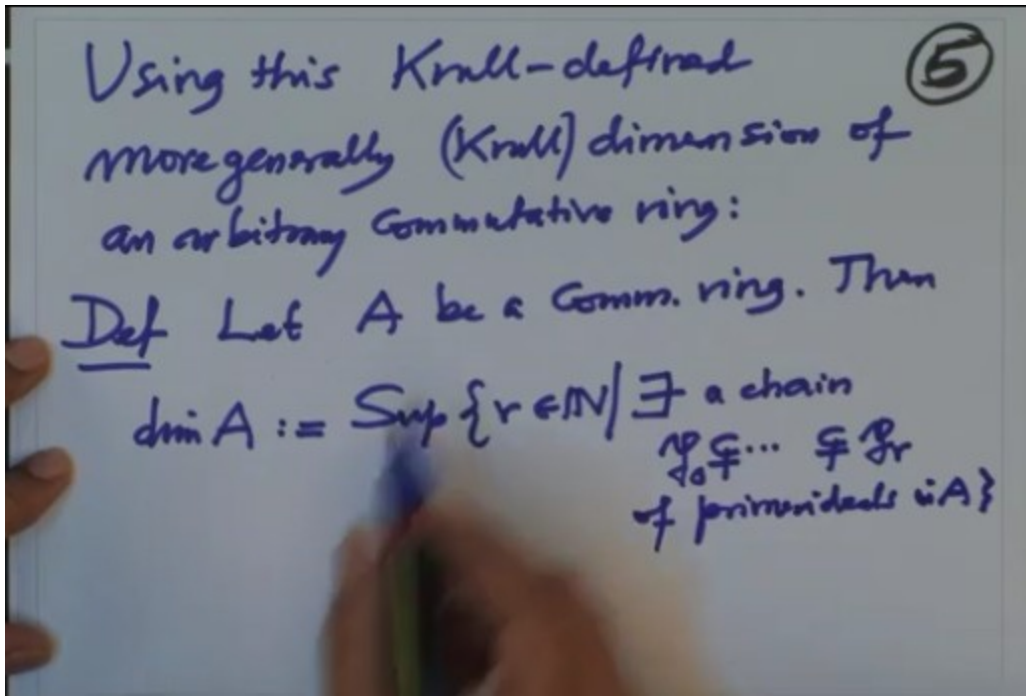 Using this Krull-defined
⑤
more generally (Krull) dimension of
an arbitrary Commutative ring:
Def Let A be a Comm. ring. Then
dim A := Sup {r ∈ ℕ | ∃ a chain
𝔭₀ ⊊ ... ⊊ 𝔭ᵣ
of prime ideals in A}